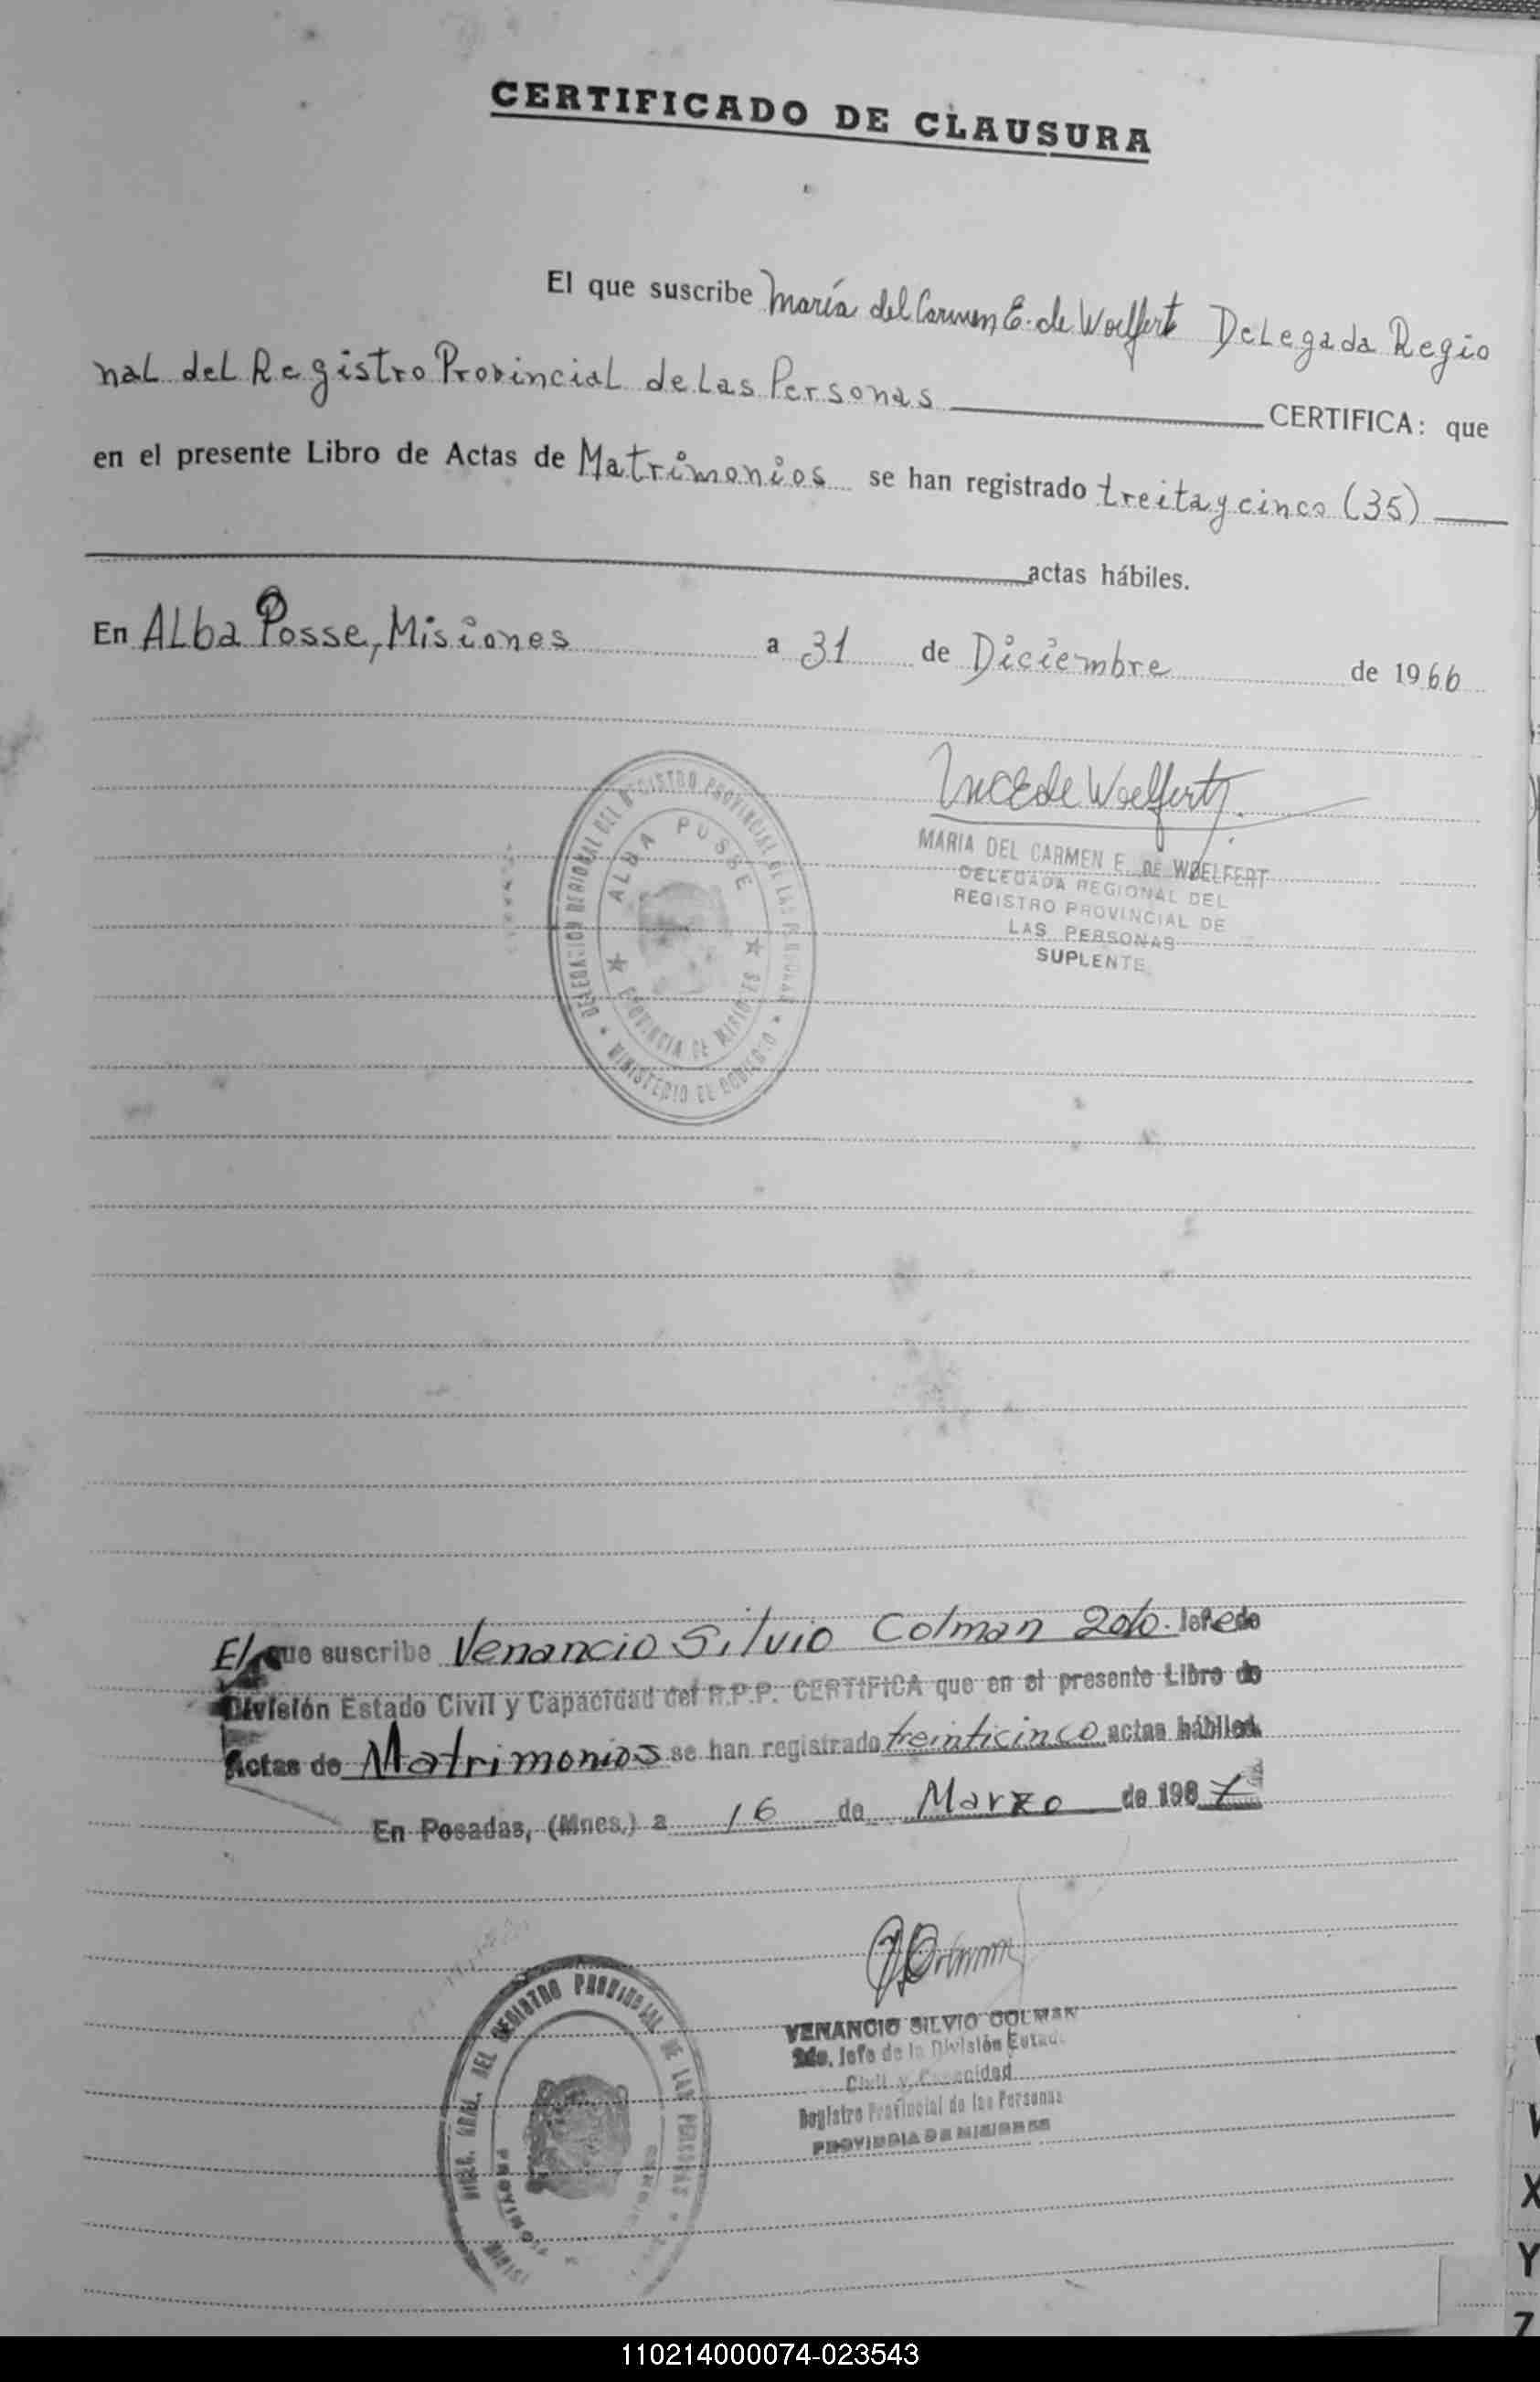 CERTIFICADO DE CLAUSURA
El que suscribe María del Carmen E. de Woelfert Delegada Regio
nal del Registro Provincial de las Personas CERTIFICA: que
en el presente Libro de Actas de Matrimonios se han registrado treita y cinco (35)
actas hábiles.
En Alba Posse, Misiones a 31 de Diciembre de 1966
DELEGACION REGIONAL DEL REGISTRO PROVINCIAL DE LAS PERSONAS * MINISTERIO DE GOBIERNO *
ALBA POSSE
PROVINCIA DE MISIONES
MCE de Woelfert
MARIA DEL CARMEN E. DE WOELFERT
DELEGADA REGIONAL DEL
REGISTRO PROVINCIAL DE
LAS PERSONAS
SUPLENTE
El que suscribe Venancio Silvio Colman 2do. Jefe de
División Estado Civil y Capacidad del R.P.P. CERTIFICA que en el presente Libro de
Actas de Matrimonios se han registrado treinticinco actas hábiles.
En Posadas, (Mnes.) a 16 de Marzo de 1967
DIREC. GRAL. DEL REGISTRO PROVINCIAL DE LAS PERSONAS
VENANCIO SILVIO COLMAN
2do. Jefe de la División Estado
Civil y Capacidad
Registro Provincial de las Personas
PROVINCIA DE MISIONES
X
Y
Z
110214000074-023543